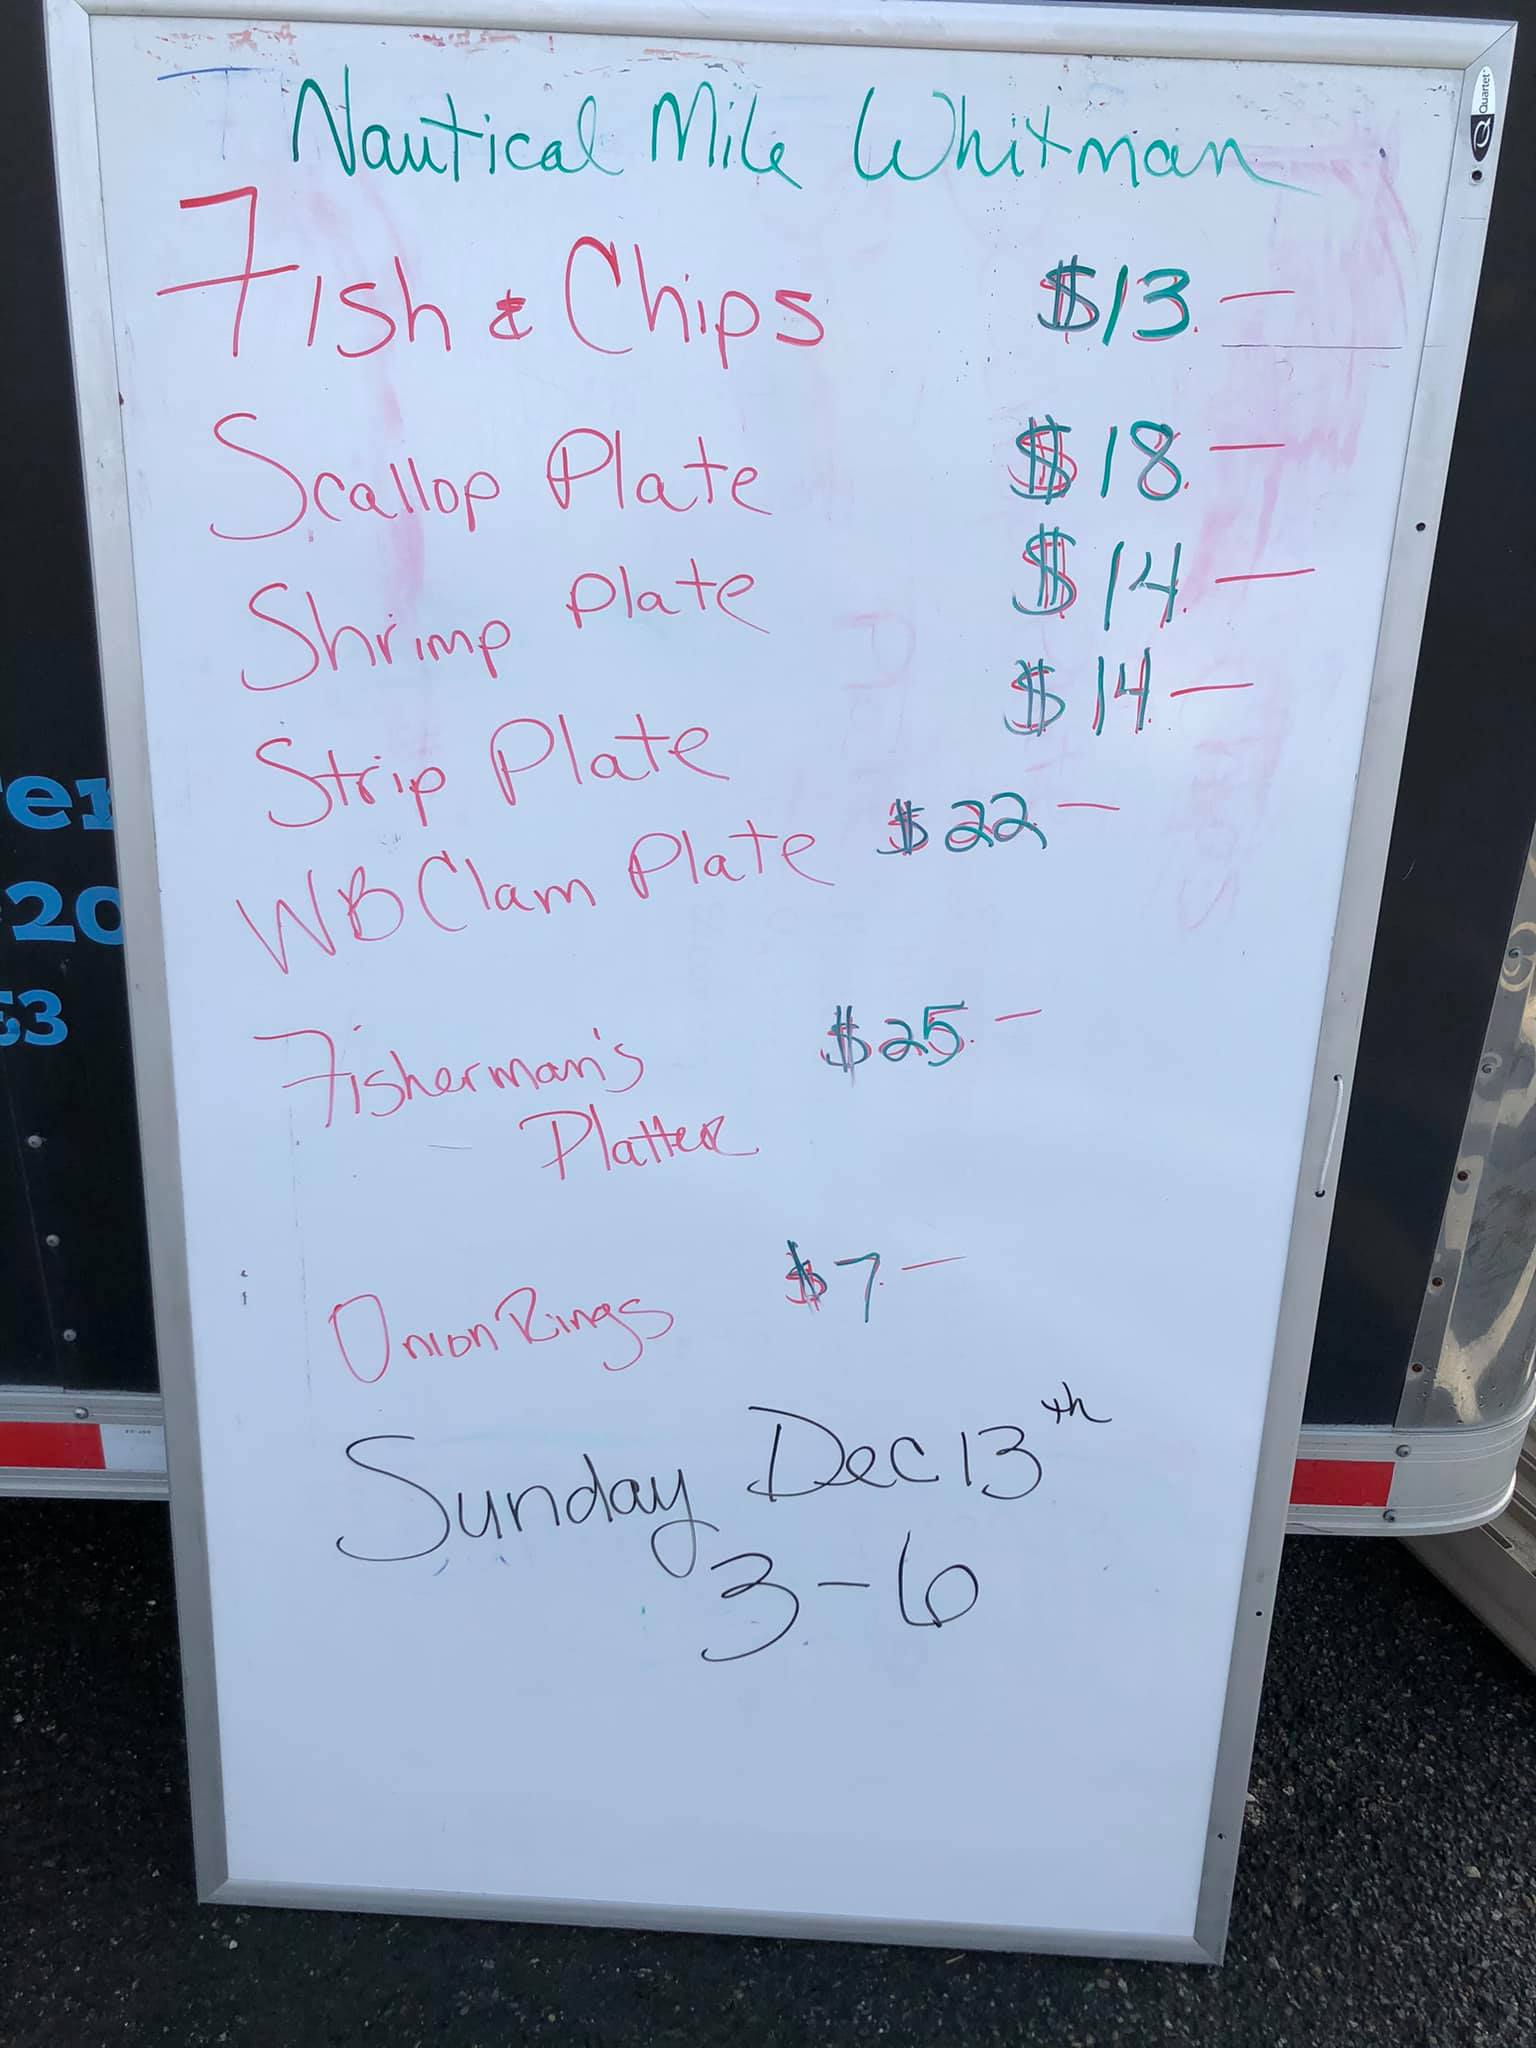 Nautical Mile Whitman
Quartet
Fish & Chips $13.—
Scallop Plate $18.—
Shrimp Plate $14.—
Strip Plate $14.—
WB Clam Plate $22.—
Fisherman's $25.—
Platter
Onion Rings $7.—
Sunday Dec 13th
3-6
er
20
53